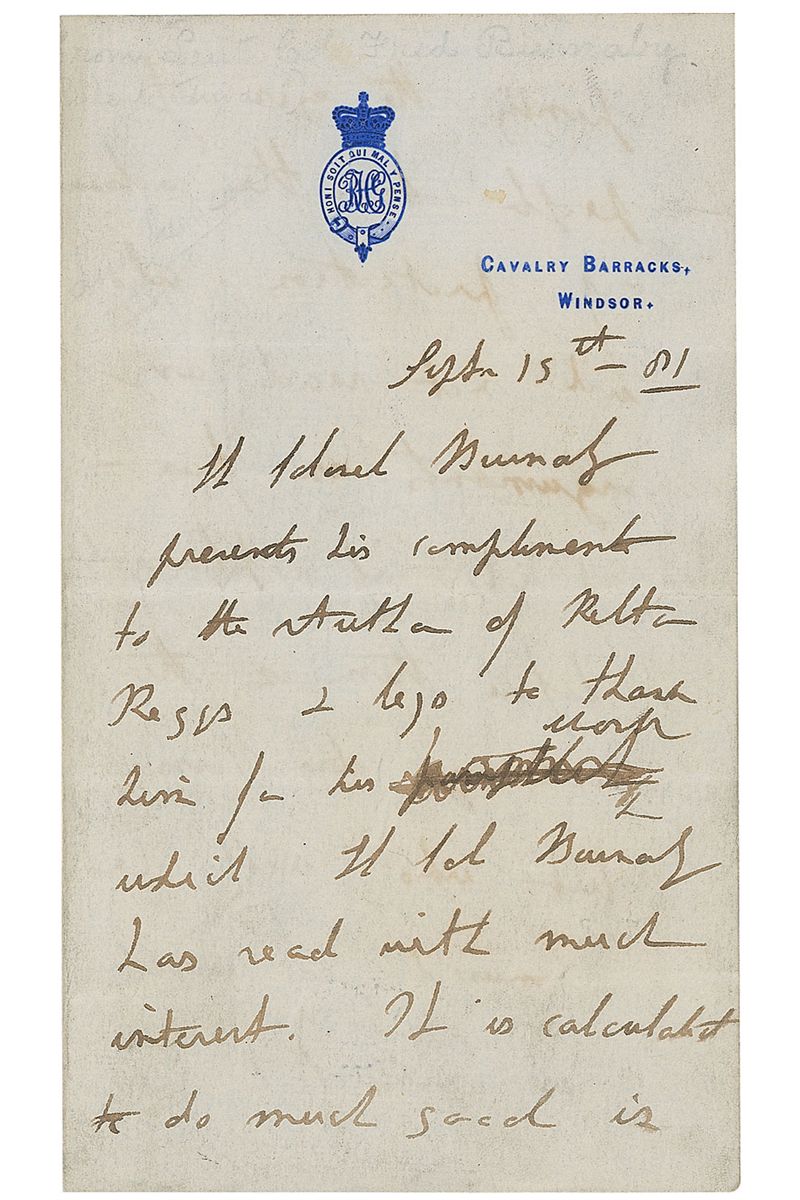 HONI SOIT QUI MAL Y PENSE
RHG
CAVALRY BARRACKS,
WINDSOR.
Septr 15th - 81
Lt Colonel Burnaby
presents his compliments
to the Author of
Reggs & begs to thank
work
him for his pamphlet
which Lt Col Burnaby
has read with much
interest. It is calculated
to do much good in